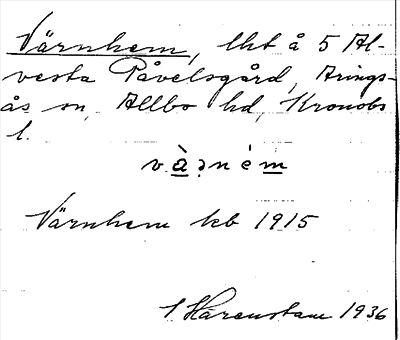 Värnhem, lht å 5 Al-
vesta Påvelsgård, Arings-
ås sn, Allbo hd, Kronobs
l.
Värnhem kb 1915
Harenstam 1936